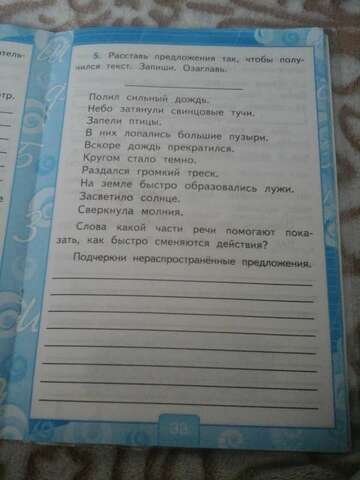 атель-
5. Расставь предложения так, чтобы полу-
чился текст. Запиши. Озаглавь.
Полил сильный дождь.
Небо затянули свинцовые тучи.
Запели птицы.
тр.
В них лопались большие пузыри.
Вскоре дождь прекратился.
Кругом стало темно.
Раздался громкий треск.
На земле быстро образовались лужи.
Засветило солнце.
Сверкнула молния.
Слова какой части речи помогают пока-
зать, как быстро сменяются действия?
Подчеркни нераспространённые предложения.